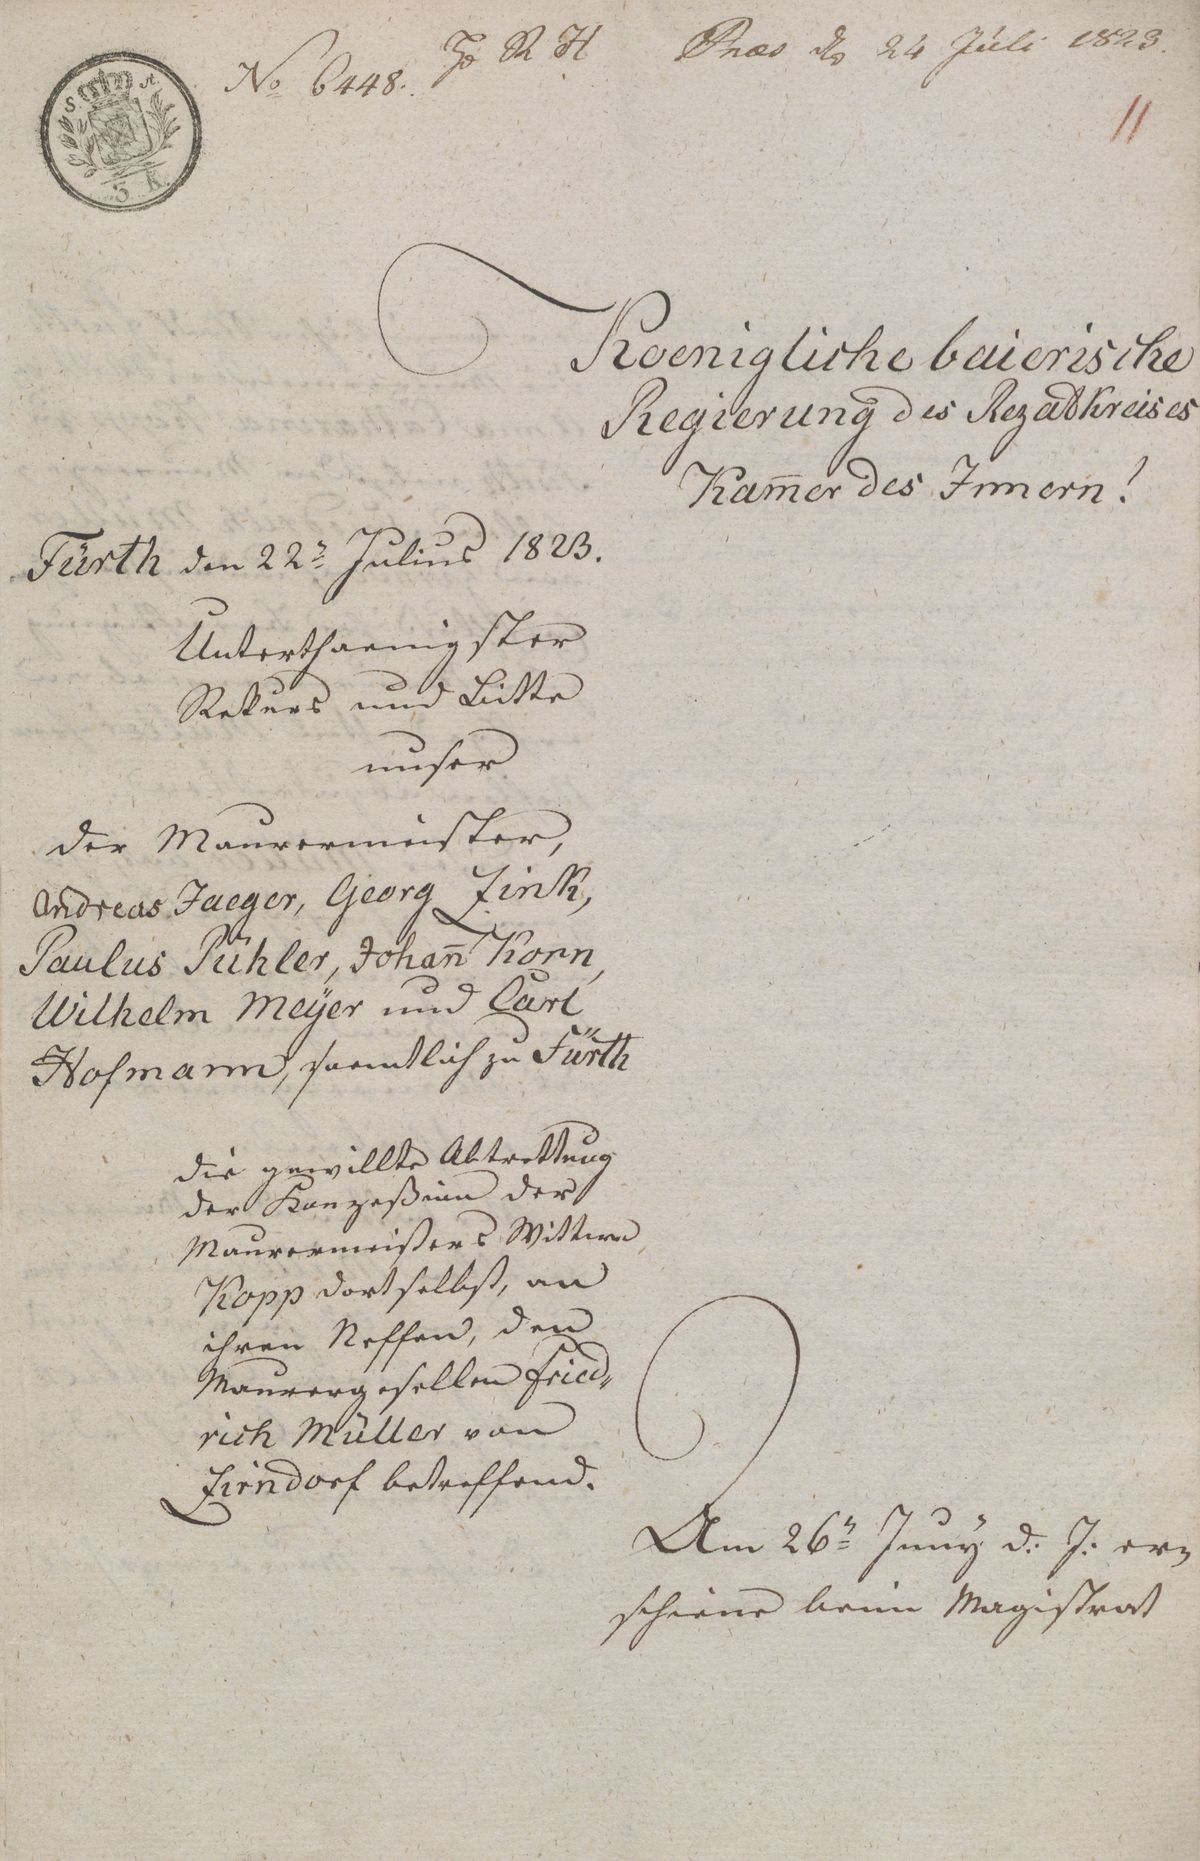 No 6448.
R H
Praes d. 24 Juli 1823.
11
S. A.
3 K.
Koenigliche baierische
Regierung des Rezatkreises
Kam̅er des Innern!
Fürth den 22n Julius 1823.
Unterthaenigster
Rekurs und Bitte
unser
der Maurermeister,
Andreas Jaeger, Georg Zink,
Paulus Pühler, Johan̅ Korn,
Wilhelm Meÿer und Carl
Hofmann, saemtlich zu Fürth
die gewillte Abtrettung
der Konzeßion der
Maurermeisters Wittwe
Kopp dortselbst, an
ihren Neffen, den
Maurergesellen Fried„
rich Müller von
Zirndorf betreffend.
Am 26n Junÿ d: J: er„
schiene beim Magistrat